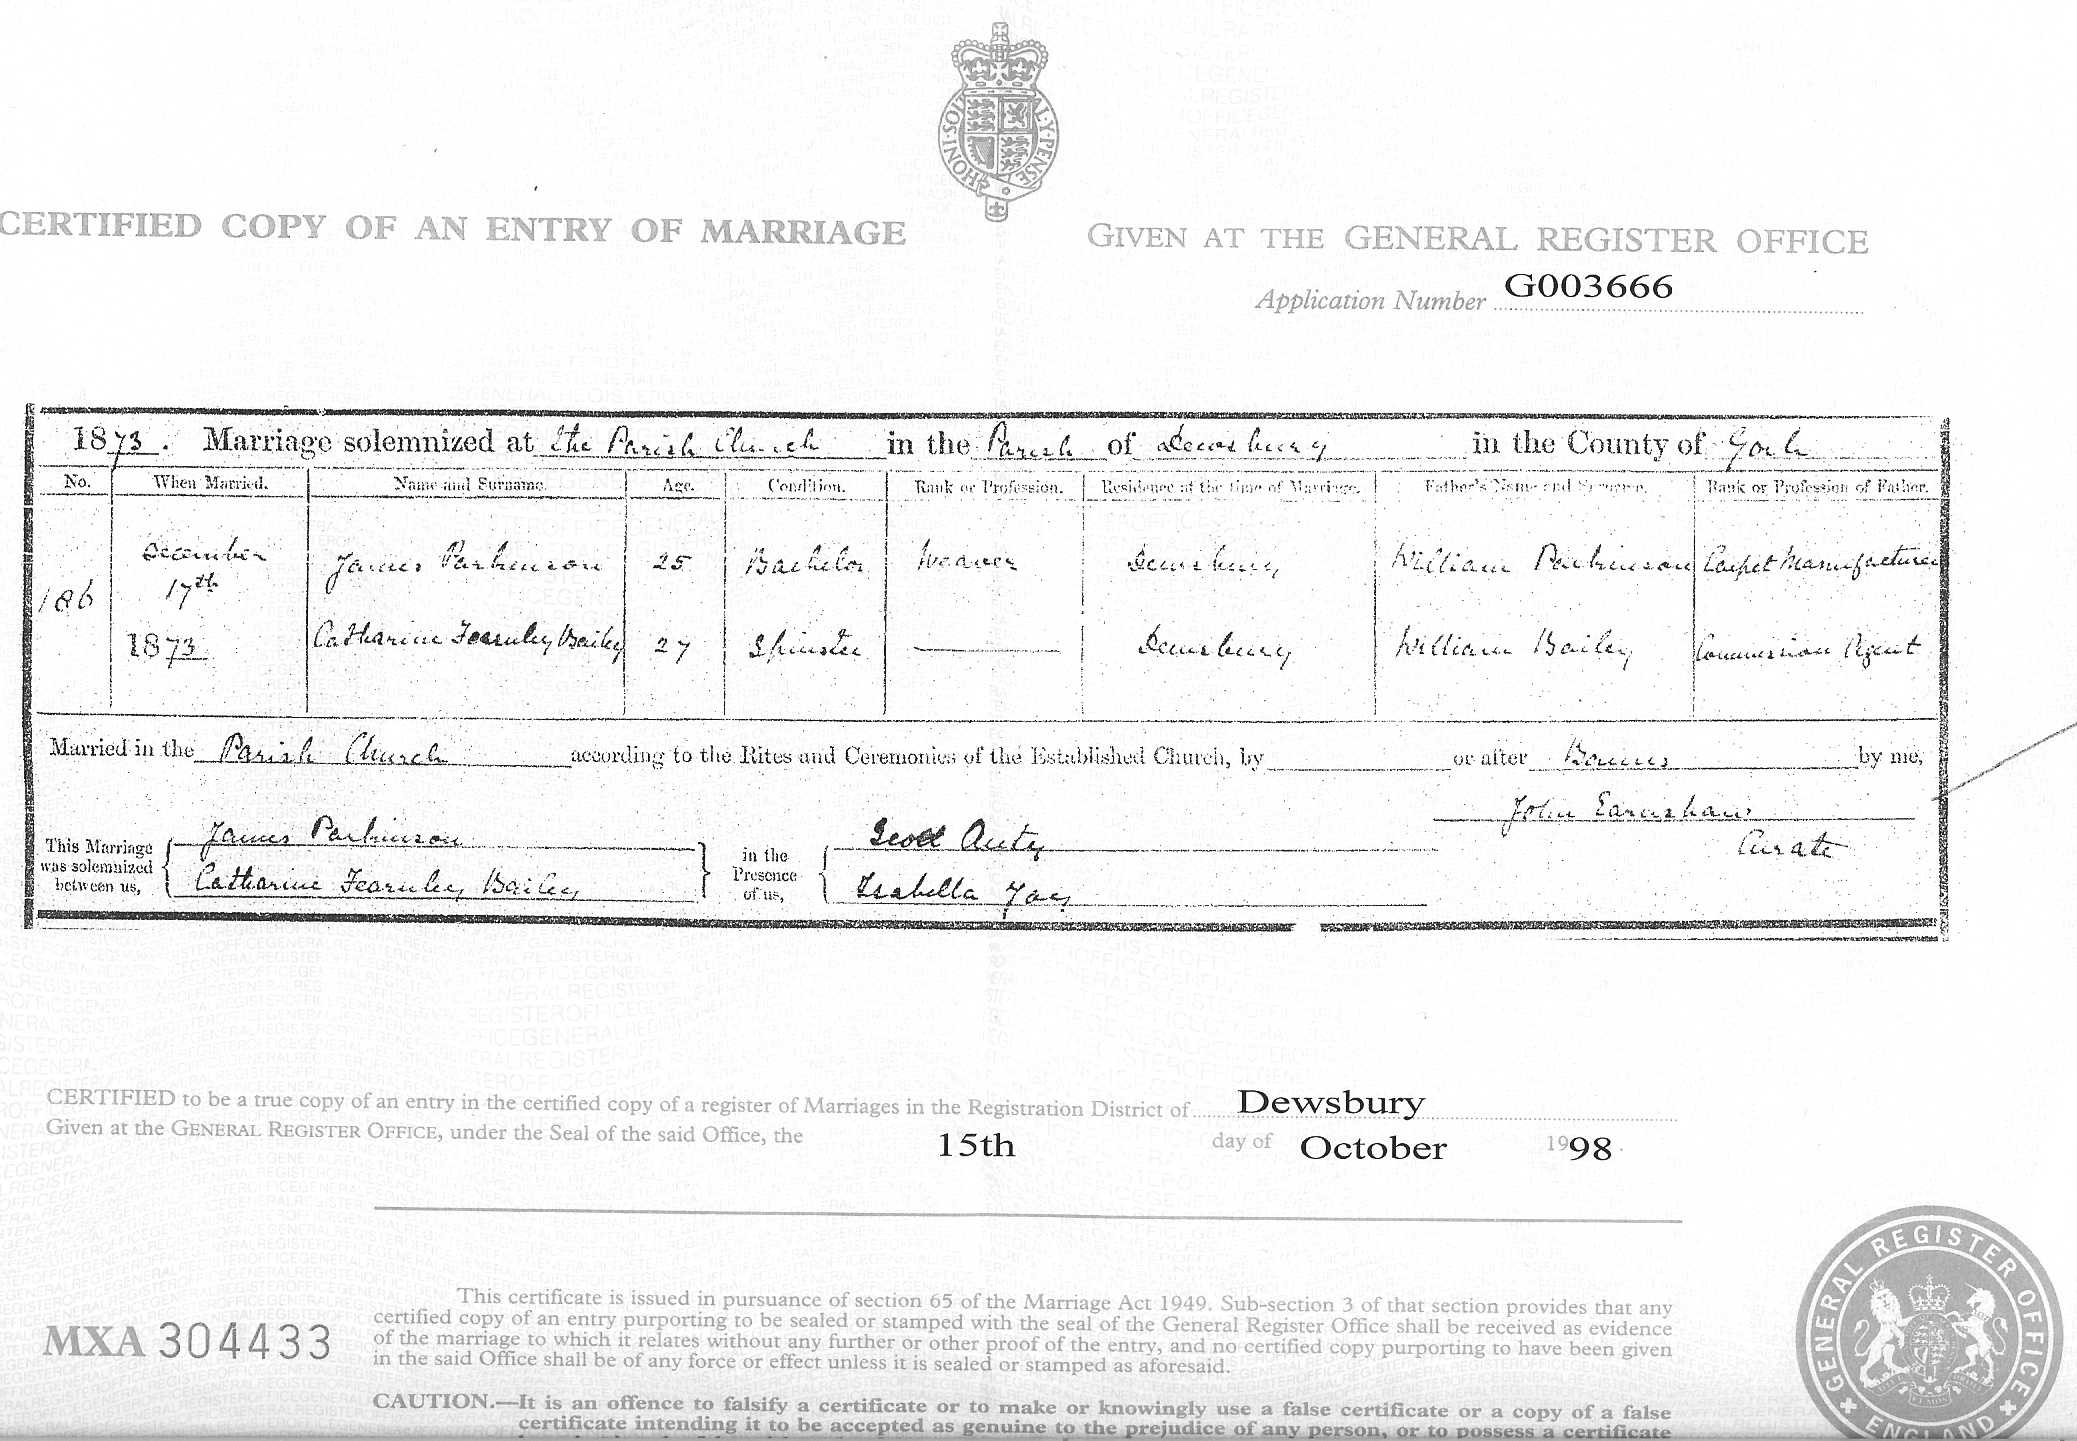 HONI·SOIT AL·Y·PENSE
CERTIFIED COPY OF AN ENTRY OF MARRIAGE
GIVEN AT THE GENERAL REGISTER OFFICE
Application Number G003666
1873. Marriage solemnized at the Parish Church in the Parish of Dewsbury in the County of York
No. When Married. Name and Surname. Age. Condition. Rank or Profession. Residence at the time of Marriage. Father's Name and Surname. Rank or Profession of Father.
186 December 17th 1873 James Parkinson 25 Bachelor Weaver Dewsbury William Parkinson Carpet Manufacturer
Catharine Fearnley Bailey 27 Spinster Dewsbury William Bailey Commission Agent
Married in the Parish Church according to the Rites and Ceremonies of the Established Church, by or after Banns by me,
John Earnshaw
Curate
This Marriage was solemnized between us,
James Parkinson
Catharine Fearnley Bailey
in the Presence of us,
Auty
Isabella
CERTIFIED to be a true copy of an entry in the certified copy of a register of Marriages in the Registration District of Dewsbury
Given at the GENERAL REGISTER OFFICE, under the Seal of the said Office, the 15th day of October 1998
MXA 304433
This certificate is issued in pursuance of section 65 of the Marriage Act 1949. Sub-section 3 of that section provides that any
certified copy of an entry purporting to be sealed or stamped with the seal of the General Register Office shall be received as evidence
of the marriage to which it relates without any further or other proof of the entry, and no certified copy purporting to have been given
in the said Office shall be of any force or effect unless it is sealed or stamped as aforesaid.
CAUTION.—It is an offence to falsify a certificate or to make or knowingly use a false certificate or a copy of a false
certificate intending it to be accepted as genuine to the prejudice of any person, or to possess a certificate
GENERAL REGISTER OFFICE
ENGLAND